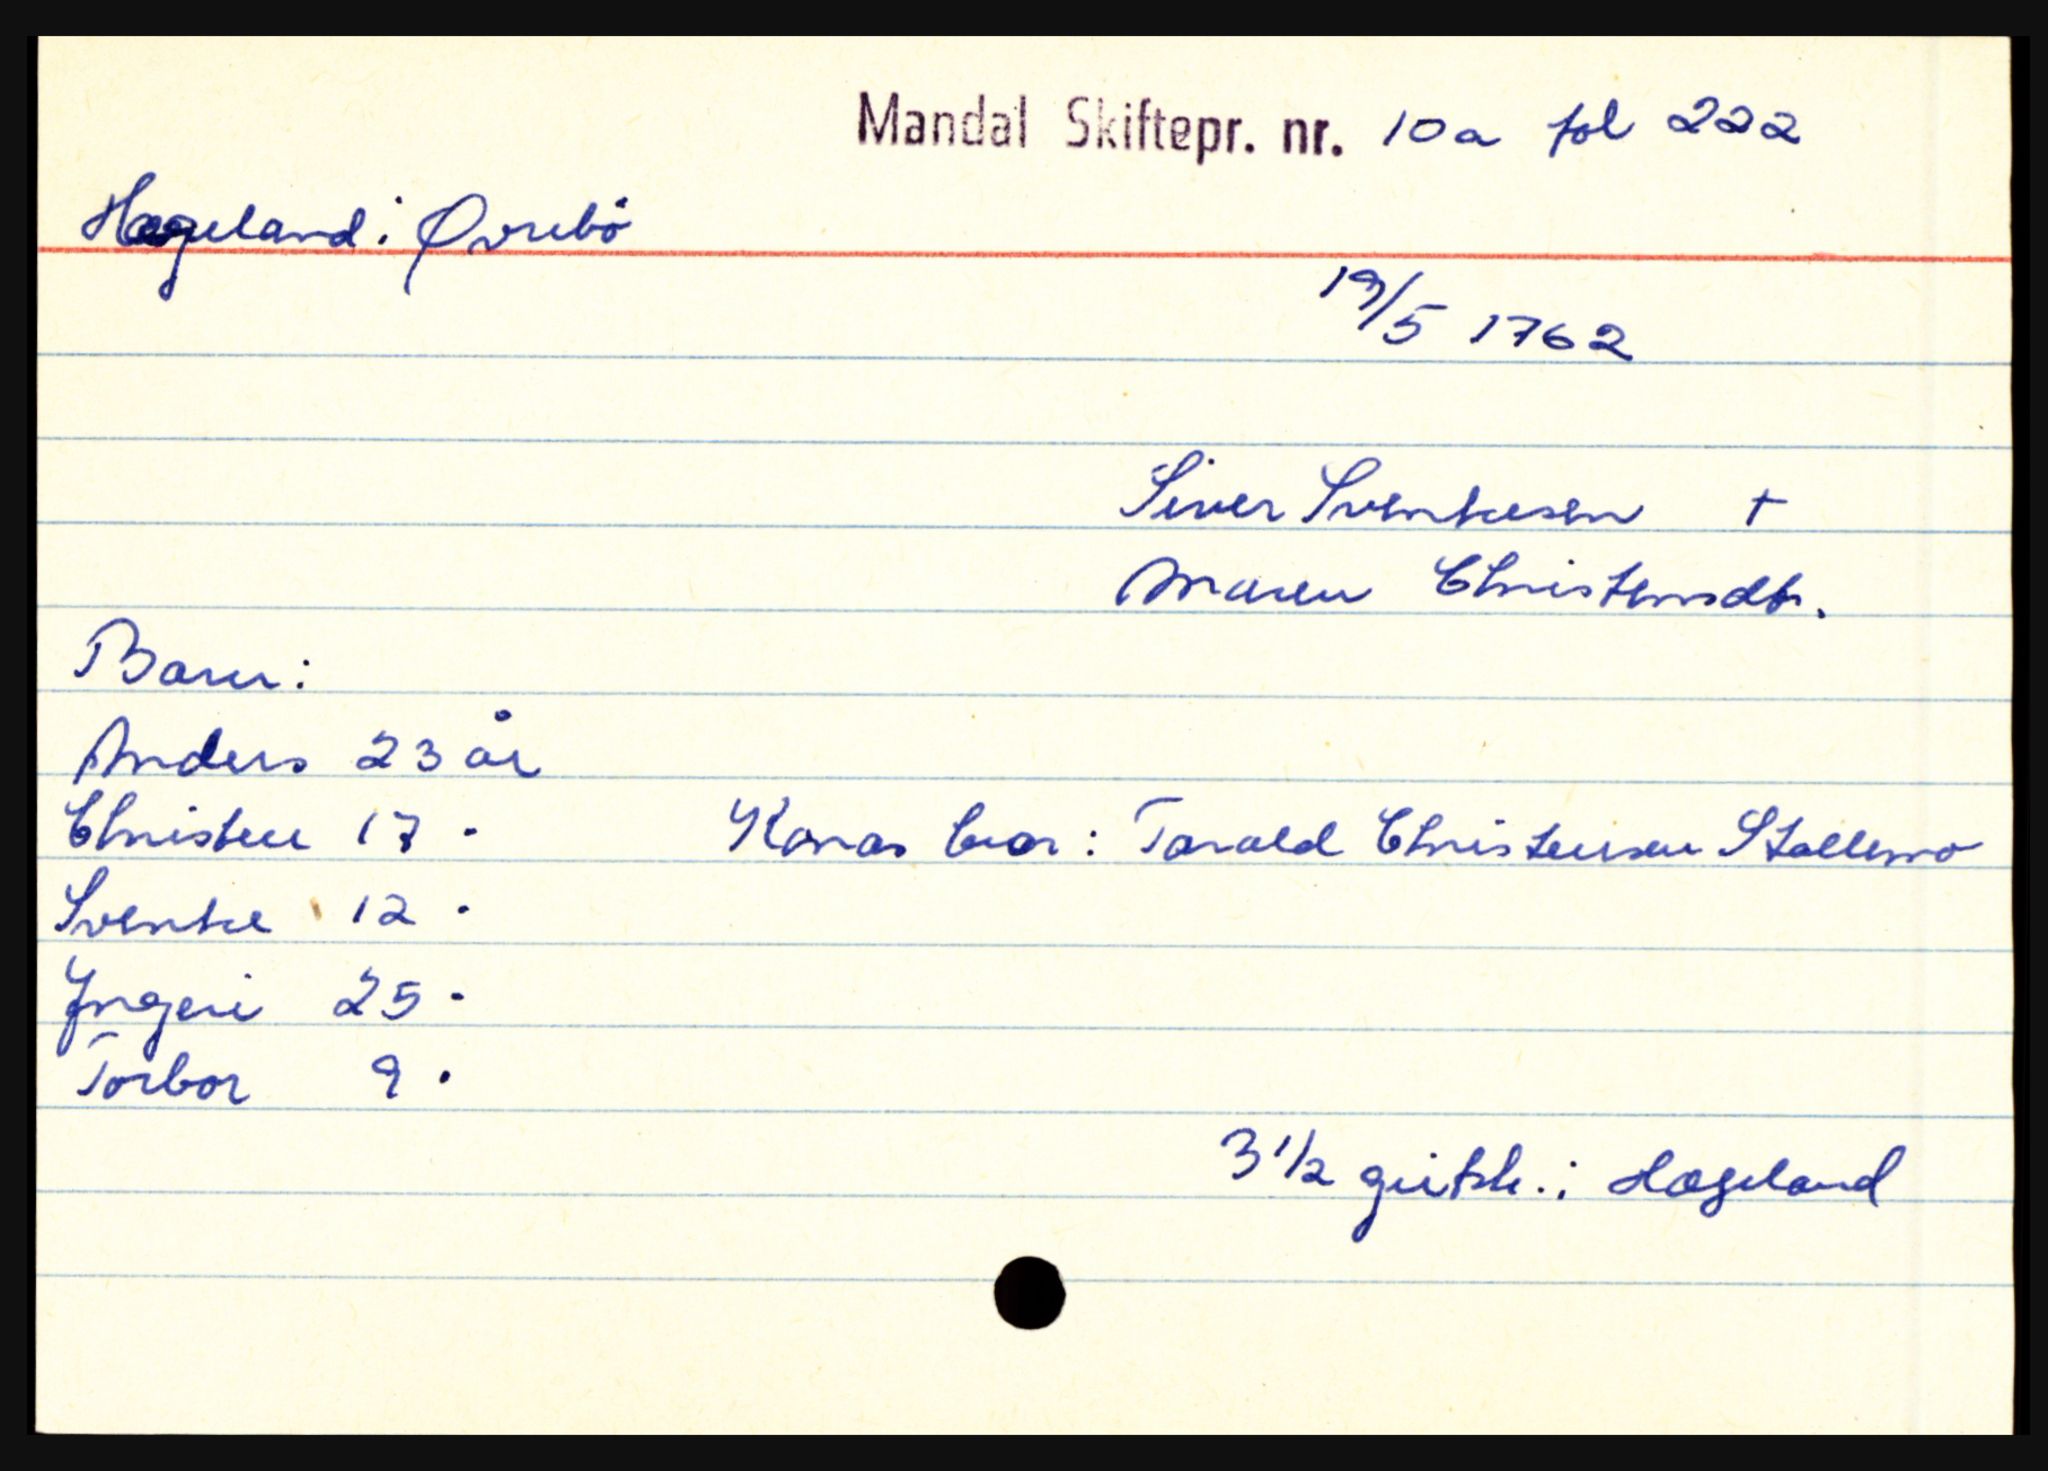 Mandal Skiftepr. nr. 10a fol 222
Hægeland i Øvrebö
19/5 1762
Siver Svenkesen +
Maren Christensdtr.
Barn:
Anders 23 år
Christen 17 "
Konas bror: Tarald Christensen Stallemo
Svenke 12 "
Ingeri 25 "
Torbor 9 "
3 1/2 geitsk. i Hægeland